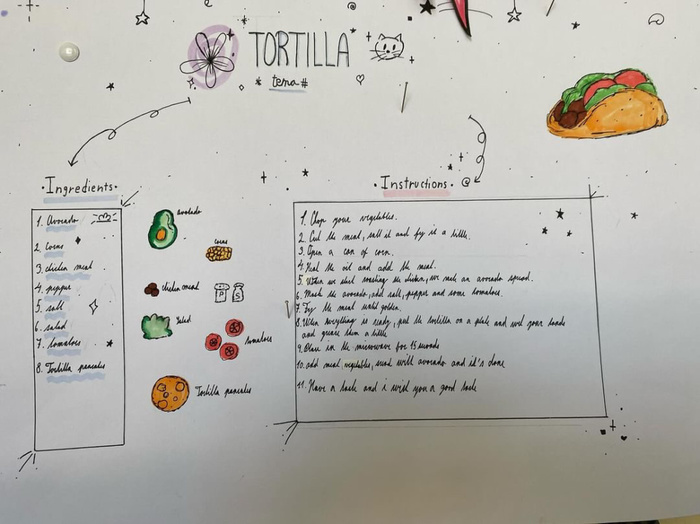 TORTILLA
tema #
Ingredients
Instructions
1. Avocado
2. Corns
3. chicken meat
4. pepper
5. salt
6. salad
7. tomatoes
8. Tortilla pancakes
avocado
corns
chicken meat
P S
salad
tomatoes
Tortilla pancakes
1. Chop your vegetables.
2. Cut the meat, salt it and fry it a little.
3. Open a can of corn.
4. Heat the oil and add the meat.
5. When we start roasting the chicken, we make an avocado spread.
6. Mash the avocado, add salt, pepper and some tomatoes.
7. Fry the meat until golden.
8. When everything is ready, put the tortilla on a plate and wet your hands
and grease them a little
9. Place in the microwave for 15 seconds
10. add meat, vegetables, spread with avocado and it's done
11. Have a taste and i wish you a good taste